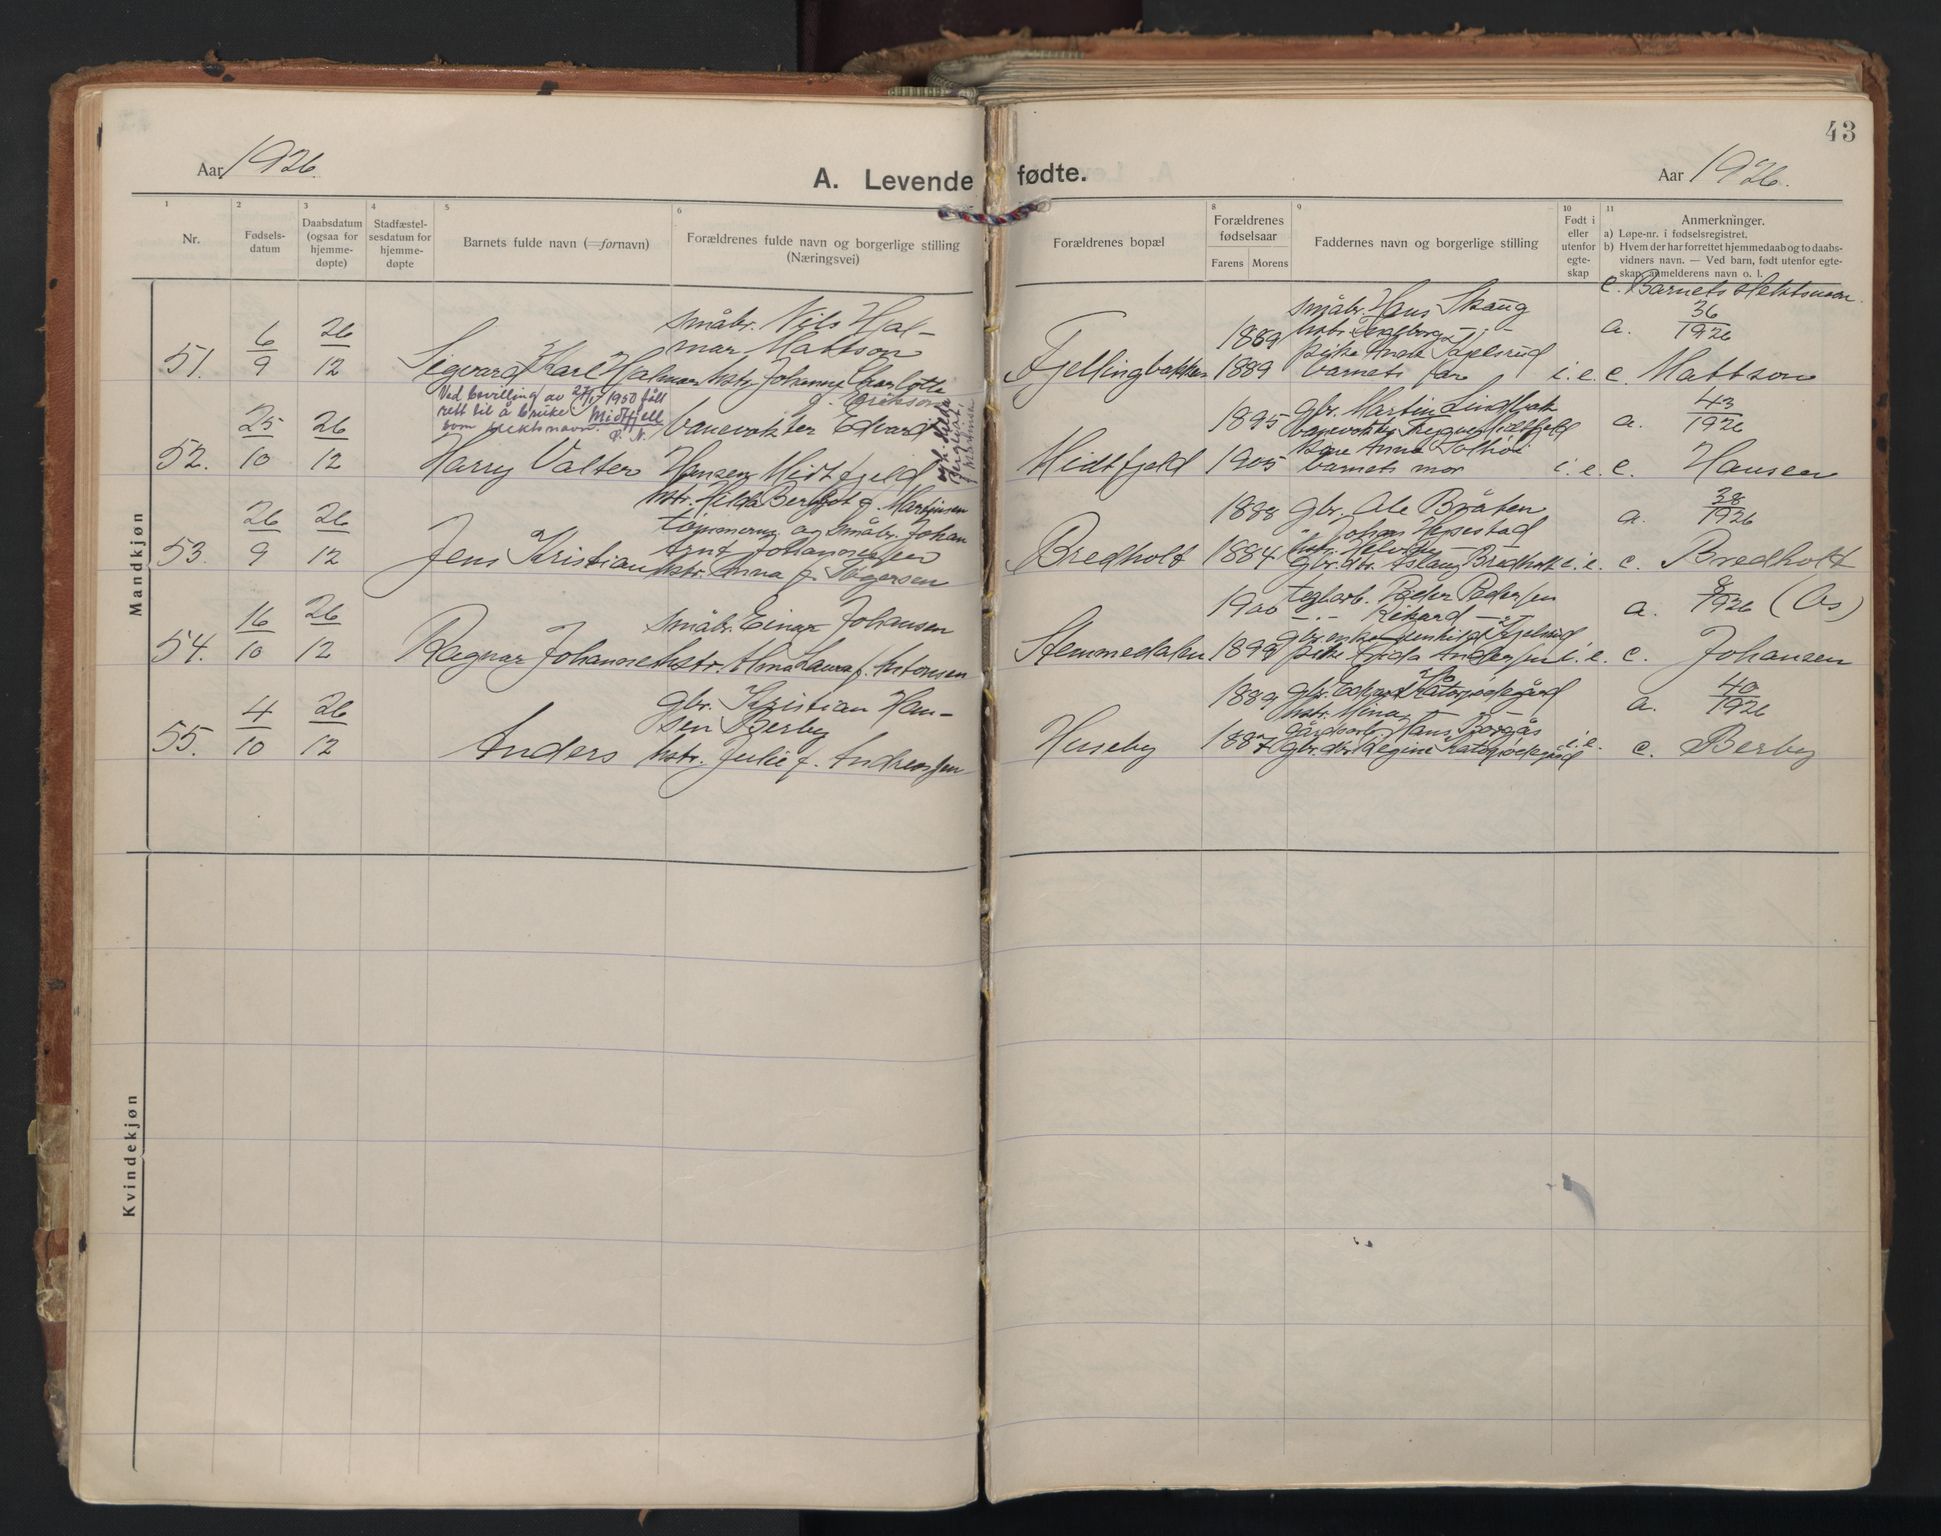 43
Aar 1926.
A. Levende fødte.
Aar 1926.
1
2
3
4
5
6
8
9
10
11
Nr.
Fødsels-
datum
Daabsdatum
(ogsaa for
hjemme-
døpte)
Stadfæstel-
sesdatum for
hjemme-
døpte
Barnets fulde navn (=fornavn)
Forældrenes fulde navn og borgerlige stilling
(Næringsvei)
Forældrenes bopæl
Forældrenes
fødselsaar
Farens
Morens
Faddernes navn og borgerlige stilling
Født i
eller
utenfor
egte-
skap
Anmerkninger.
a) Løpe-nr. i fødselsregistret.
b) Hvem der har forrettet hjemmedaab og to daabs-
vidners navn. — Ved barn, født utenfor egte-
skap, anmelderens navn o. l.
c. Barnets slektsnavn.
Mandkjøn
51.
6/9
26/12
Sigvard Karl Hjalmar
småbr. Nils Hjal-
mar Mattson
hstr. Johanne Charlotte
f. Erikson
Fjellingbakken
1889
1889
småbr. Hans Skaug
hstr. Ingeborg —
pike Anna
barnets far
i. e.
a. 36/1926
c. Mattson
Ved bevilling av 1950 fått
rett til å bruke Midtfjell
som slektsnavn.
52.
25/10
26/12
Harry Valter
banevokter Edvard
Hansen Midtfjeld
hstr. Hilda Bergljot f. Martinsen
Midtfjeld
1895
1905
gbr. Martin
banevokter Midtfjeld
Anna Solhøi
barnets mor
i. e.
a. 43/1926
c. Hansen
53.
26/9
26/12
Jens Kristian
tømmerm. og småbr. Johan
Arnt Johannessen
hstr. Anna f. Tøgersen
Bredholt
1888
1884
gbr. Ole Bråten
" Johan
hstr.
gbr.dtr. Aslaug Bredholt
i. e.
a. 38/1926
c. Bredholt
54.
16/10
26/12
Ragnar Johannes
småbr. Einar Johansen
hstr. Alma Laura f. Antonsen
Stemmedalen
1900
1899
teglarb. Peder Pedersen
—"— Rikard —"—
gbr.enke
pike Frida Andersen
i. e.
a. 8/1926 (Ås)
c. Johansen
55.
4/10
26/12
Anders
gbr. Kristian Han-
sen Berby
hstr. Julie f. Andreassen
Huseby
1889
1887
gbr. Edvard
hstr. Mina —
gårdsarb. Hans
gbr.dtr. Regine
i. e.
a. 40/1926
c. Berby
Kvindekjøn